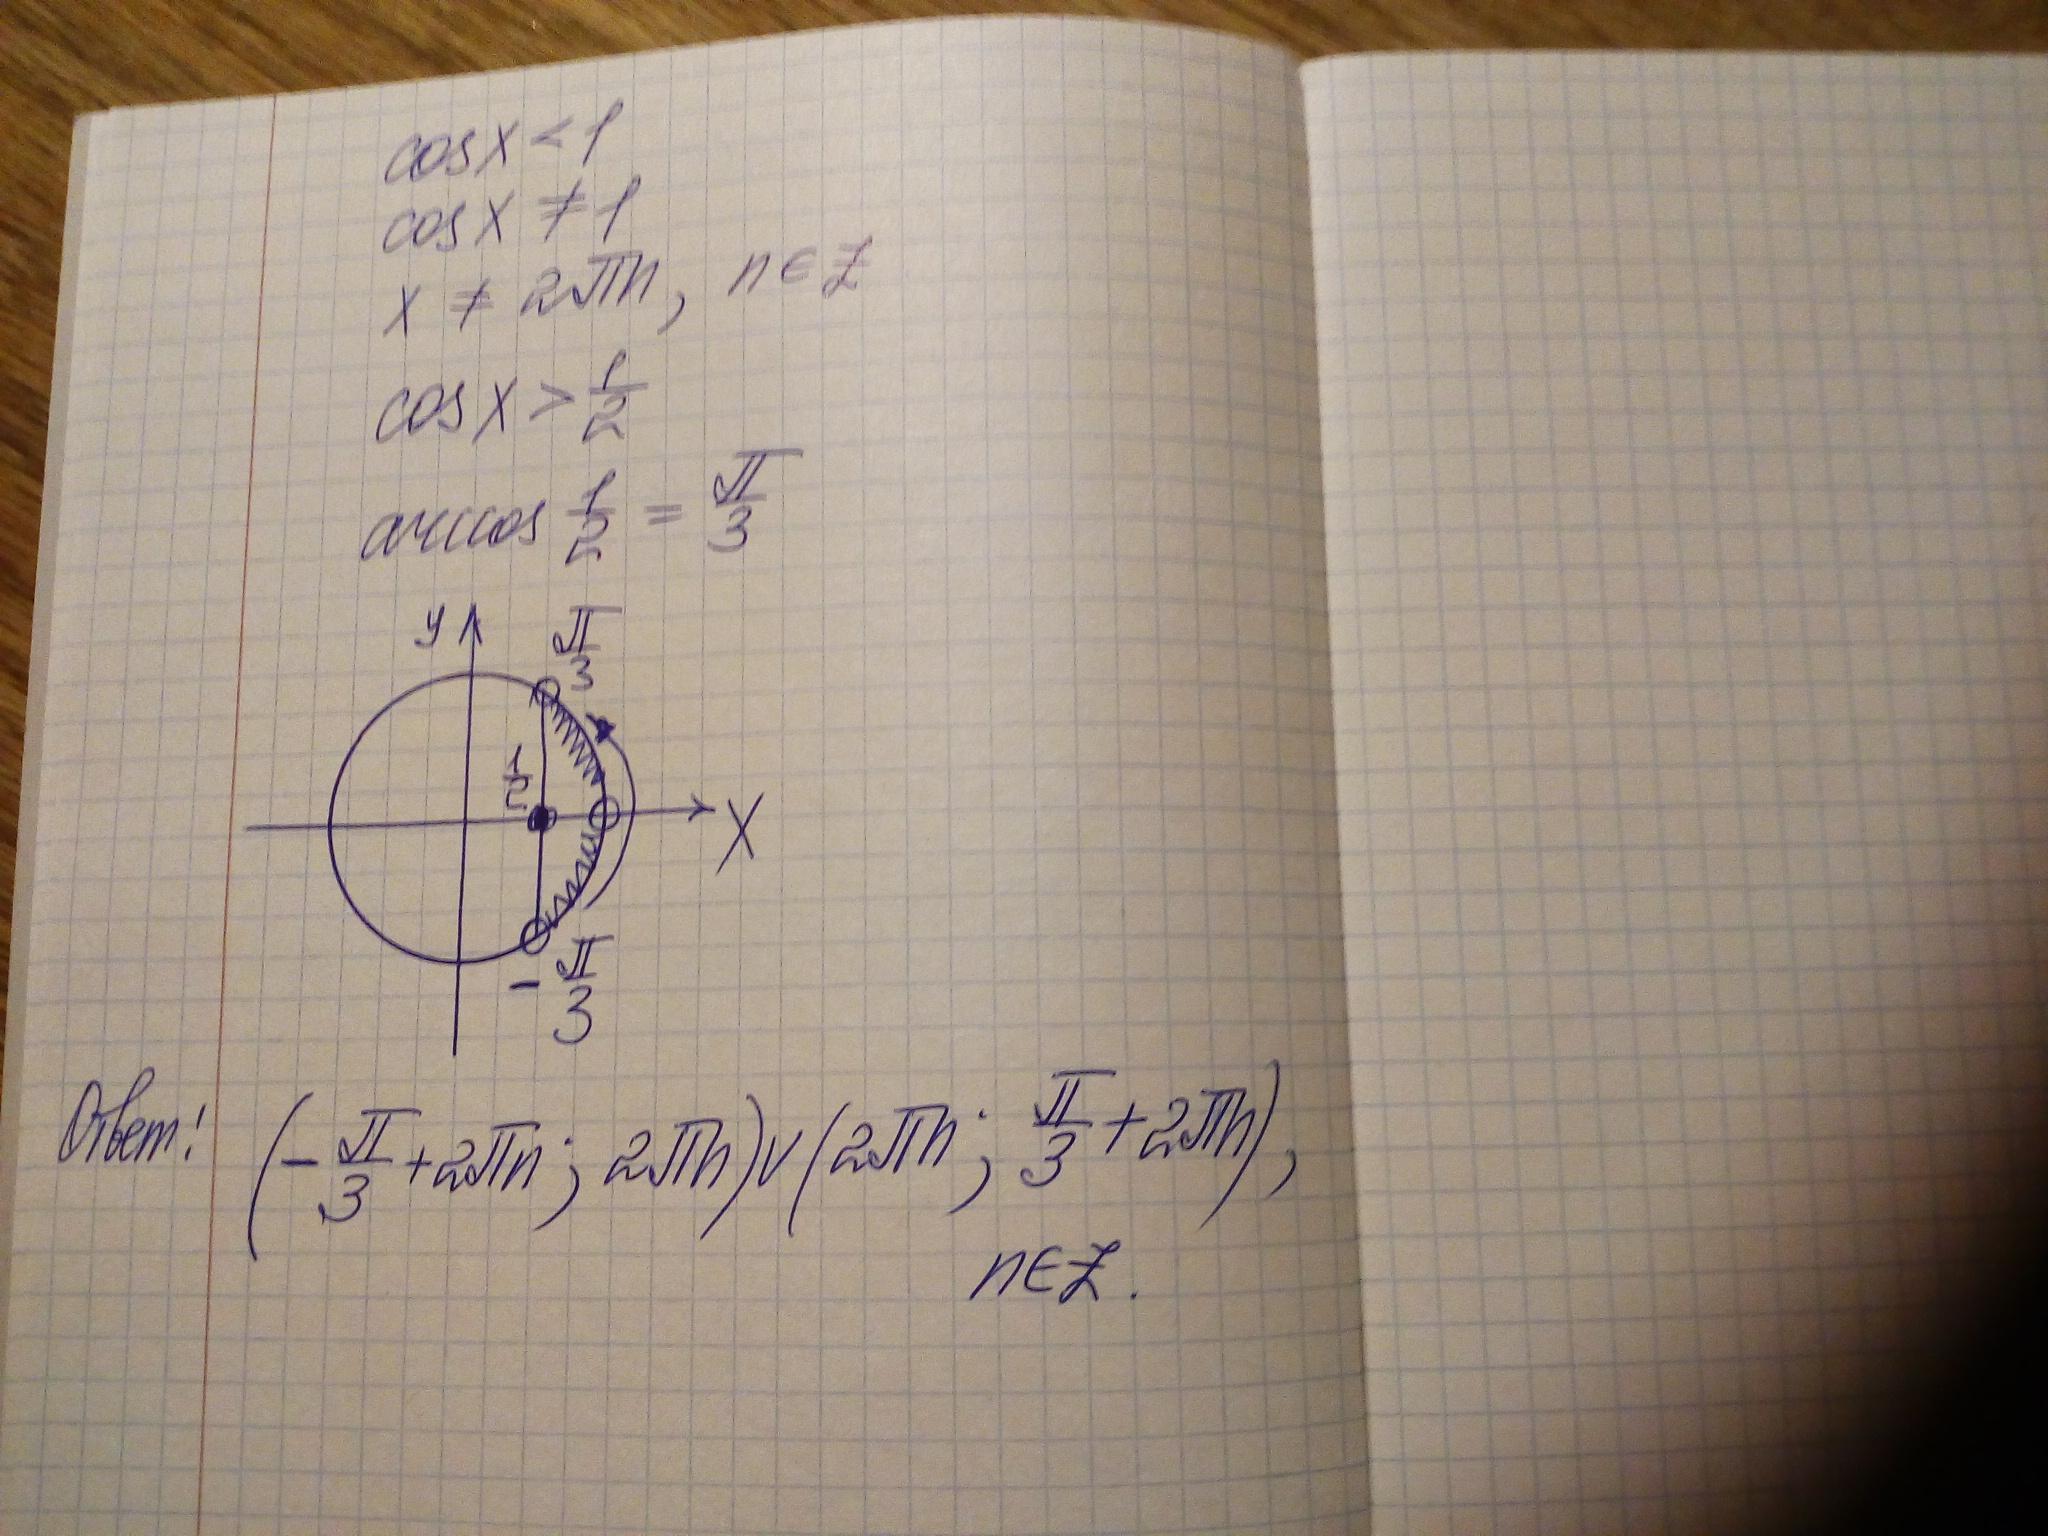 cosx < 1
cosx ≠ 1
x ≠ 2πn, n∈Z
cosx > 1/2
arccos 1/2 = π/3
y
π/3
1/2
X
-π/3
Ответ: (-π/3+2πn; 2πn)∪(2πn; π/3+2πn),
n∈Z.